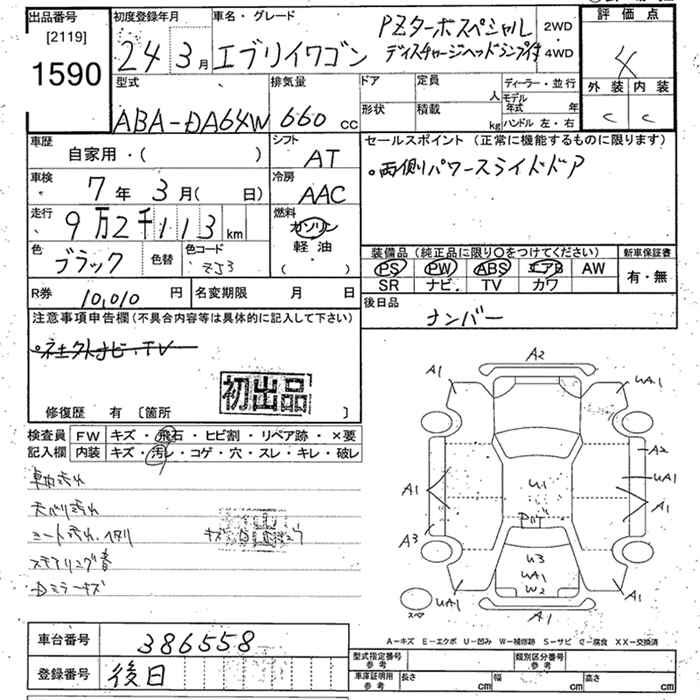 出品番号
[2119]
1590
初度登録年月
24 3月
車名・グレード
エブリイワゴン
PZターボスペシャル
ディスチャージヘッドランプ付
2WD
4WD
評価点
4
外装 内装
C C
型式
ABA-DA64W
排気量
660 cc
ドア
形状
定員
人
積載
kg
ディーラー・並行
モデル年式 年
ハンドル 左・右
車歴
自家用・( )
シフト
AT
車検
7年 3月( 日)
冷房
AAC
走行
9万2千113 km
燃料
ガソリン
軽油
( )
色
ブラック
色替
色コード
ZJ3
セールスポイント (正常に機能するものに限ります)
両側パワースライドドア
装備品 (純正品に限り〇をつけてください)
新車保証書
PS PW ABS エアB AW
SR ナビ. TV カワ
有・無
R券 10,010 円
名変期限 月 日
後日品
ナンバー
注意事項申告欄 (不具合内容等は具体的に記入して下さい)
社外ナビ・TV
初出品
修復歴 有 〔箇所 〕
検査員
記入欄
FW キズ・飛石・ヒビ割・リペア跡・×要
内装 キズ・汚レ・コゲ・穴・スレ・キレ・破レ
車内汚れ
天バリ汚れ
シート汚れ、スレ
ステアリング
ドアミラーキズ
A2
A1
UA1
A2
UA1
A1
A1
A3
U1
U3
UA1
W2
UA1
A1
A1
スペア
A-キズ E-エクボ U-凹み W-補修跡 S-サビ C-腐食 XX-交換済
車台番号
386558
登録番号
後日
型式指定番号
参考
類別区分番号
参考
車庫証明用
参考
長さ cm
幅 cm
高さ cm